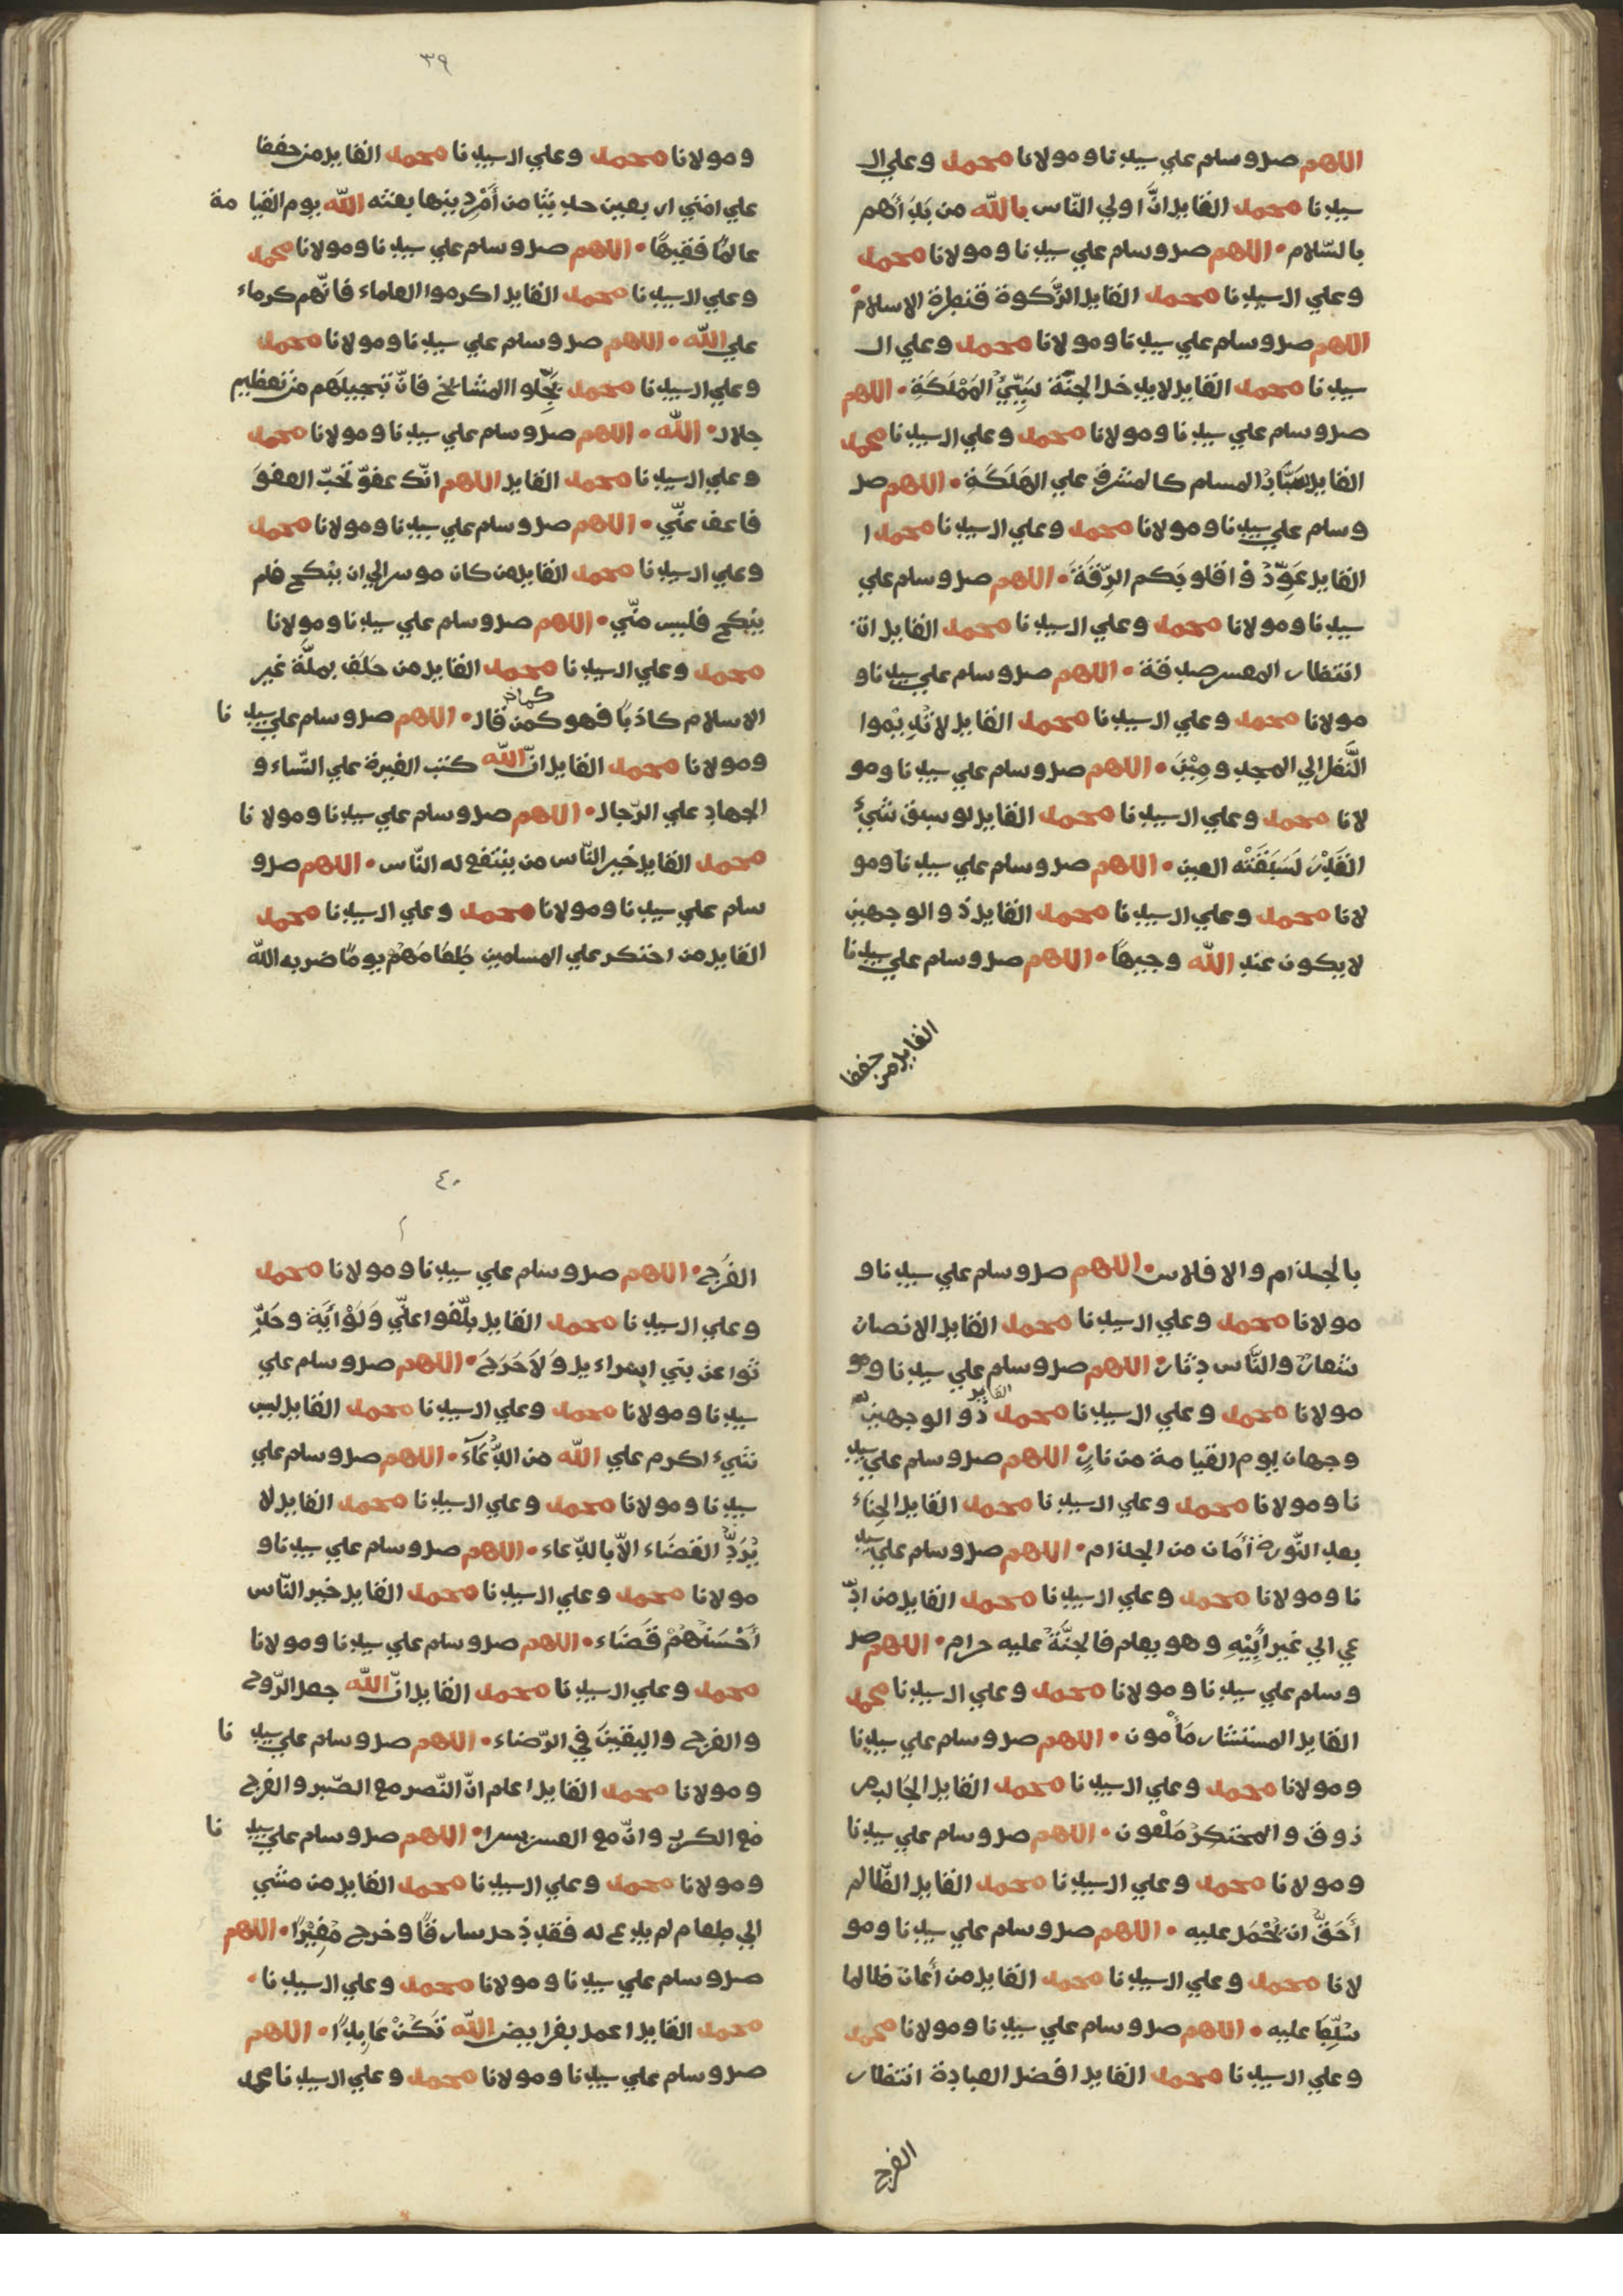 اللهم صل وسلم علي سيدنا ومولانا محمد وعلي ال
سيدنا محمد القايل انّ اولي النّاس بالله من بَدَأهم
بالسّلام • اللهم صل وسلم علي سيدنا ومولانا محمد
وعلي ال سيدنا محمد القايل الزّكوة قنطرة الاسلام •
اللهم صل وسلم علي سيدنا ومولانا محمد وعلي ال
سيدنا محمد القايل لا يدخل الجنّة سَيّئُ المَمْلَكَةِ • اللهم
صل وسلم علي سيدنا ومولانا محمد وعلي ال سيدنا محمد
القايل المسلم كالمشرف علي الهَلَكَةِ • اللهم صل
وسلم علي سيدنا ومولانا محمد وعلي ال سيدنا محمد ا
القايل عَوِّدُوا قلوبَكم الرِّقَةَ • اللهم صل وسلم علي
سيدنا ومولانا محمد وعلي ال سيدنا محمد القايل انّ
انتظار المعسر صدقة • اللهم صل وسلم علي سيدنا و
مولانا محمد وعلي ال سيدنا محمد القايل لا تُدِيْموا
النَّظَر الي المجذومِيْنَ • اللهم صل وسلم علي سيدنا ومو
لانا محمد وعلي ال سيدنا محمد القايل لو سبق شيءٌ
القَدَرَ لَسَبَقَتْه العين • اللهم صل وسلم علي سيدنا ومو
لانا محمد وعلي ال سيدنا محمد القايل ذو الوجهين
لا يكون عند الله وجيهاً • اللهم صل وسلم علي سيدنا
القايل من حفظا
٣٩
ومولانا محمد وعلي ال سيدنا محمد القايل من حفظا
علي امّتي اربعين حديثا من أَمْرِ دينها بعثه الله يوم القيامة
عالمًا فقيهًا • اللهم صل وسلم علي سيدنا ومولانا محمد
وعلي ال سيدنا محمد القايل اكرموا العلماء فانّهم كرماء
علي الله • اللهم صل وسلم علي سيدنا ومولانا محمد
وعلي ال سيدنا محمد بَجِّلوا المشائخ فانّ تبجيلَهم من تعظيم
جلال • الله • اللهم صل وسلم علي سيدنا ومولانا محمد
وعلي ال سيدنا محمد القايل اللهم انّك عفوّ تُحبّ العفوَ
فاعف عنّي • اللهم صل وسلم علي سيدنا ومولانا محمد
وعلي ال سيدنا محمد القايل من كان موسرا لي ان ينكح فلم
ينكح فليس منّي • اللهم صل وسلم علي سيدنا ومولانا
محمد وعلي ال سيدنا محمد القايل من حَلَفَ بملّة غير
الاسلام كاذبًا فهو كمن قال • اللهم صل وسلم علي سيدنا
ومولانا محمد القايل انّ الله كتب الغيرة علي النّساء و
الجهاد علي الرّجال • اللهم صل وسلم علي سيدنا ومولانا
محمد القايل خير النّاس من ينتفع له النّاس • اللهم صل و
سلم علي سيدنا ومولانا محمد وعلي ال سيدنا محمد
القايل من احتكر علي المسلمين طَعَامَهُمْ يومًا ضربه الله
بالجذام والافلاس • اللهم صل وسلم علي سيدنا و
مولانا محمد وعلي ال سيدنا محمد القايل الانصار
شعارٌ والنّاس دِثار • اللهم صل وسلم علي سيدنا ومو
مولانا محمد وعلي ال سيدنا محمد القايل ذو الوجهين له
وجهان يوم القيامة من نارٍ • اللهم صل وسلم علي سيد
نا ومولانا محمد وعلي ال سيدنا محمد القايل الحِنَاء
بعد النّورة أمان من الجذام • اللهم صل وسلم علي سيد
نا ومولانا محمد وعلي ال سيدنا محمد القايل من ادّ
عي الي غير أَبِيْهِ وهو يعلم فالجنّةُ عليه حرام • اللهم صل
وسلم علي سيدنا ومولانا محمد وعلي ال سيدنا محمد
القايل المستشار مَأْمون • اللهم صل وسلم علي سيدنا
ومولانا محمد وعلي ال سيدنا محمد القايل الجَالب مر
زوق والمحتكِرُ مَلْعون • اللهم صل وسلم علي سيدنا
ومولانا محمد وعلي ال سيدنا محمد القايل الظّالم
أَحَقُّ ان يُحْمَل عليه • اللهم صل وسلم علي سيدنا ومو
لانا محمد وعلي ال سيدنا محمد القايل من أعان ظالما
سُلِّطَ عليه • اللهم صل وسلم علي سيدنا ومولانا محمد
وعلي ال سيدنا محمد القايل افضل العبادة انتظار
الفرج
٤٠
الفَرَج • اللهم صل وسلم علي سيدنا ومولانا محمد
وعلي ال سيدنا محمد القايل بلّغوا عنّي وَلَوْ أَيَةً وحَدِّ
ثوا عن بني اسراءيل وَلاَ حَرَجَ • اللهم صل وسلم علي
سيدنا ومولانا محمد وعلي ال سيدنا محمد القايل ليس
شيء اكرم علي الله من الدُّعَاءِ • اللهم صل وسلم علي
سيدنا ومولانا محمد وعلي ال سيدنا محمد القايل لا
يُرَدُّ القضَاء الاّ بالدّعاء • اللهم صل وسلم علي سيدنا و
مولانا محمد وعلي ال سيدنا محمد القايل خير النّاس
أَحْسَنُهُمْ قَضَاء • اللهم صل وسلم علي سيدنا ومولانا
محمد وعلي ال سيدنا محمد القايل انّ الله جعل الرّوح
والفرج واليقينَ في الرّضاء • اللهم صل وسلم علي سيدنا
ومولانا محمد القايل اعلم انّ النّصر مع الصّبر والفرج
مع الكرب وانّ مع العسر يسرا • اللهم صل وسلم علي سيدنا
ومولانا محمد وعلي ال سيدنا محمد القايل من مشي
الي طعام لم يدع له فقد دخل سارقًا وخرج مُغِيْرًا • اللهم
صل وسلم علي سيدنا ومولانا محمد وعلي ال سيدنا •
محمد القايل اعمل بفرايض الله تَكُنْ عَابِدًا • اللهم
صل وسلم علي سيدنا ومولانا محمد وعلي ال سيدنا محمد